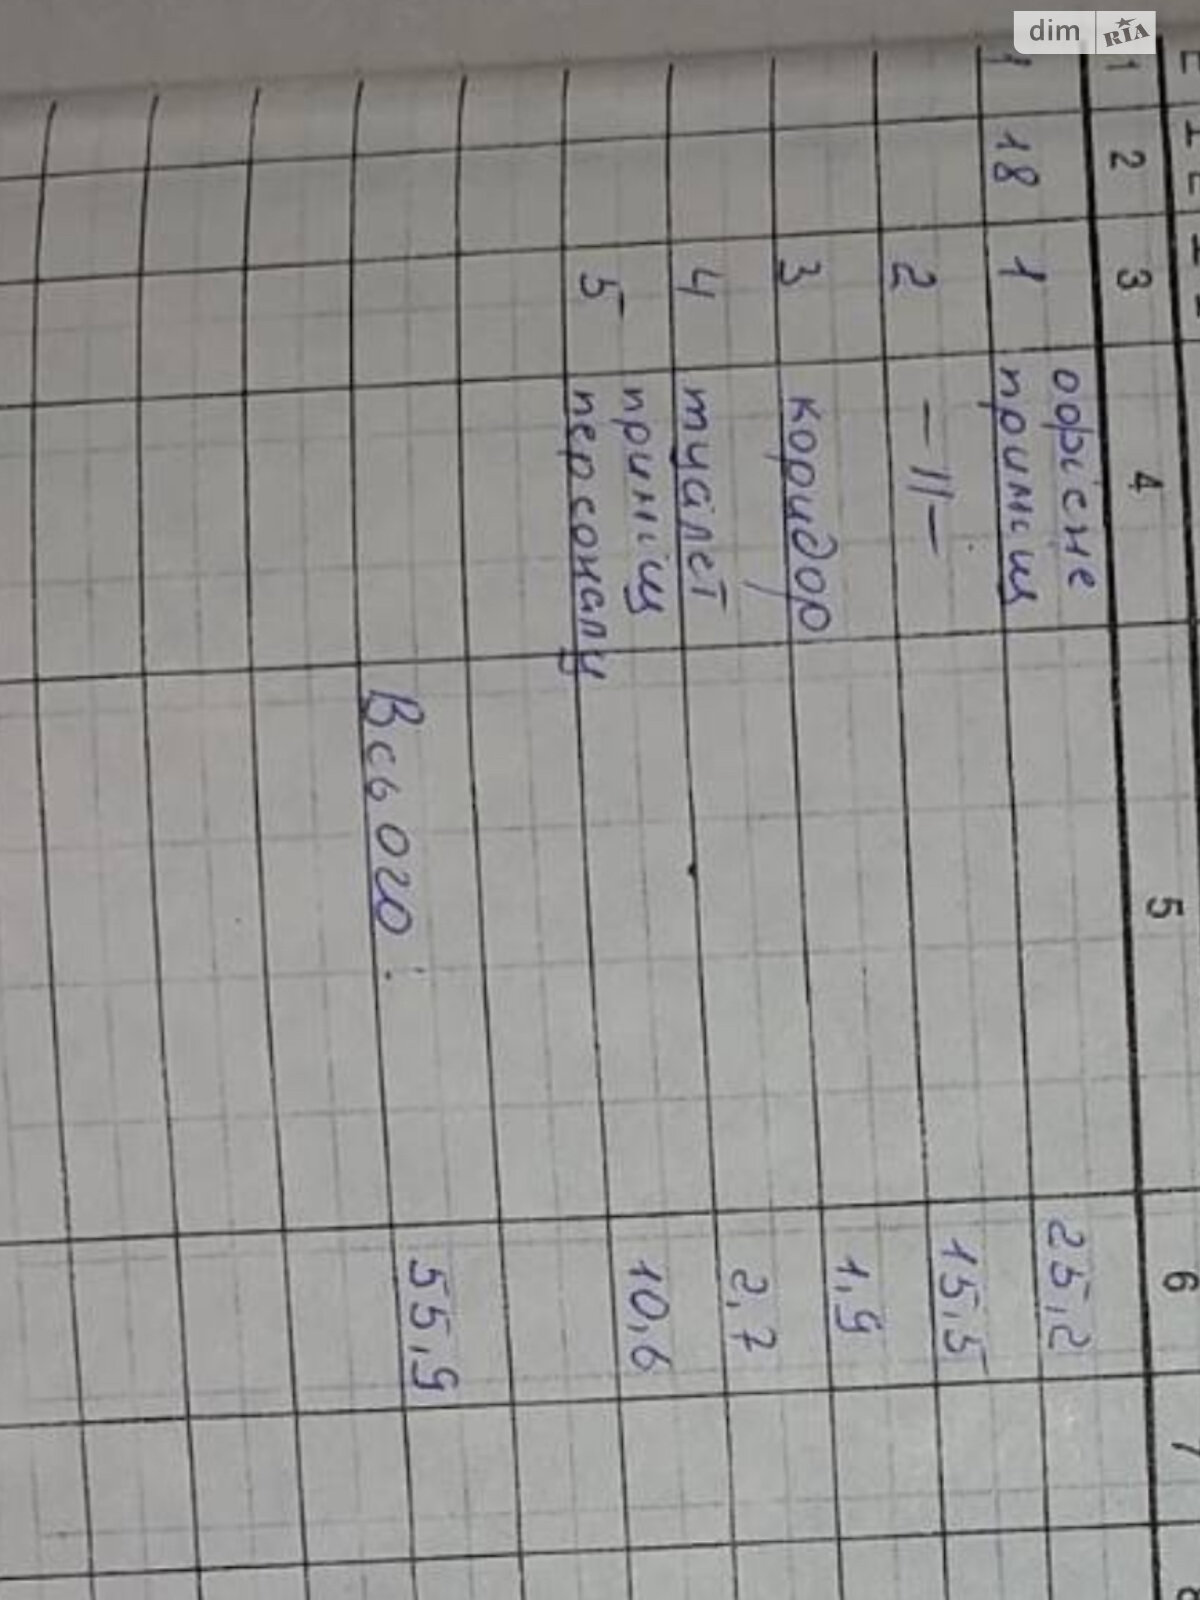 dim RIA
1 2 3 4 5 6 7
1 18 1 офісне
приміщ 25,2
2 –〃– 15,5
3 коридор 1,9
4 туалет 2,7
5 приміщ
персоналу 10,6
Всього: 55,9